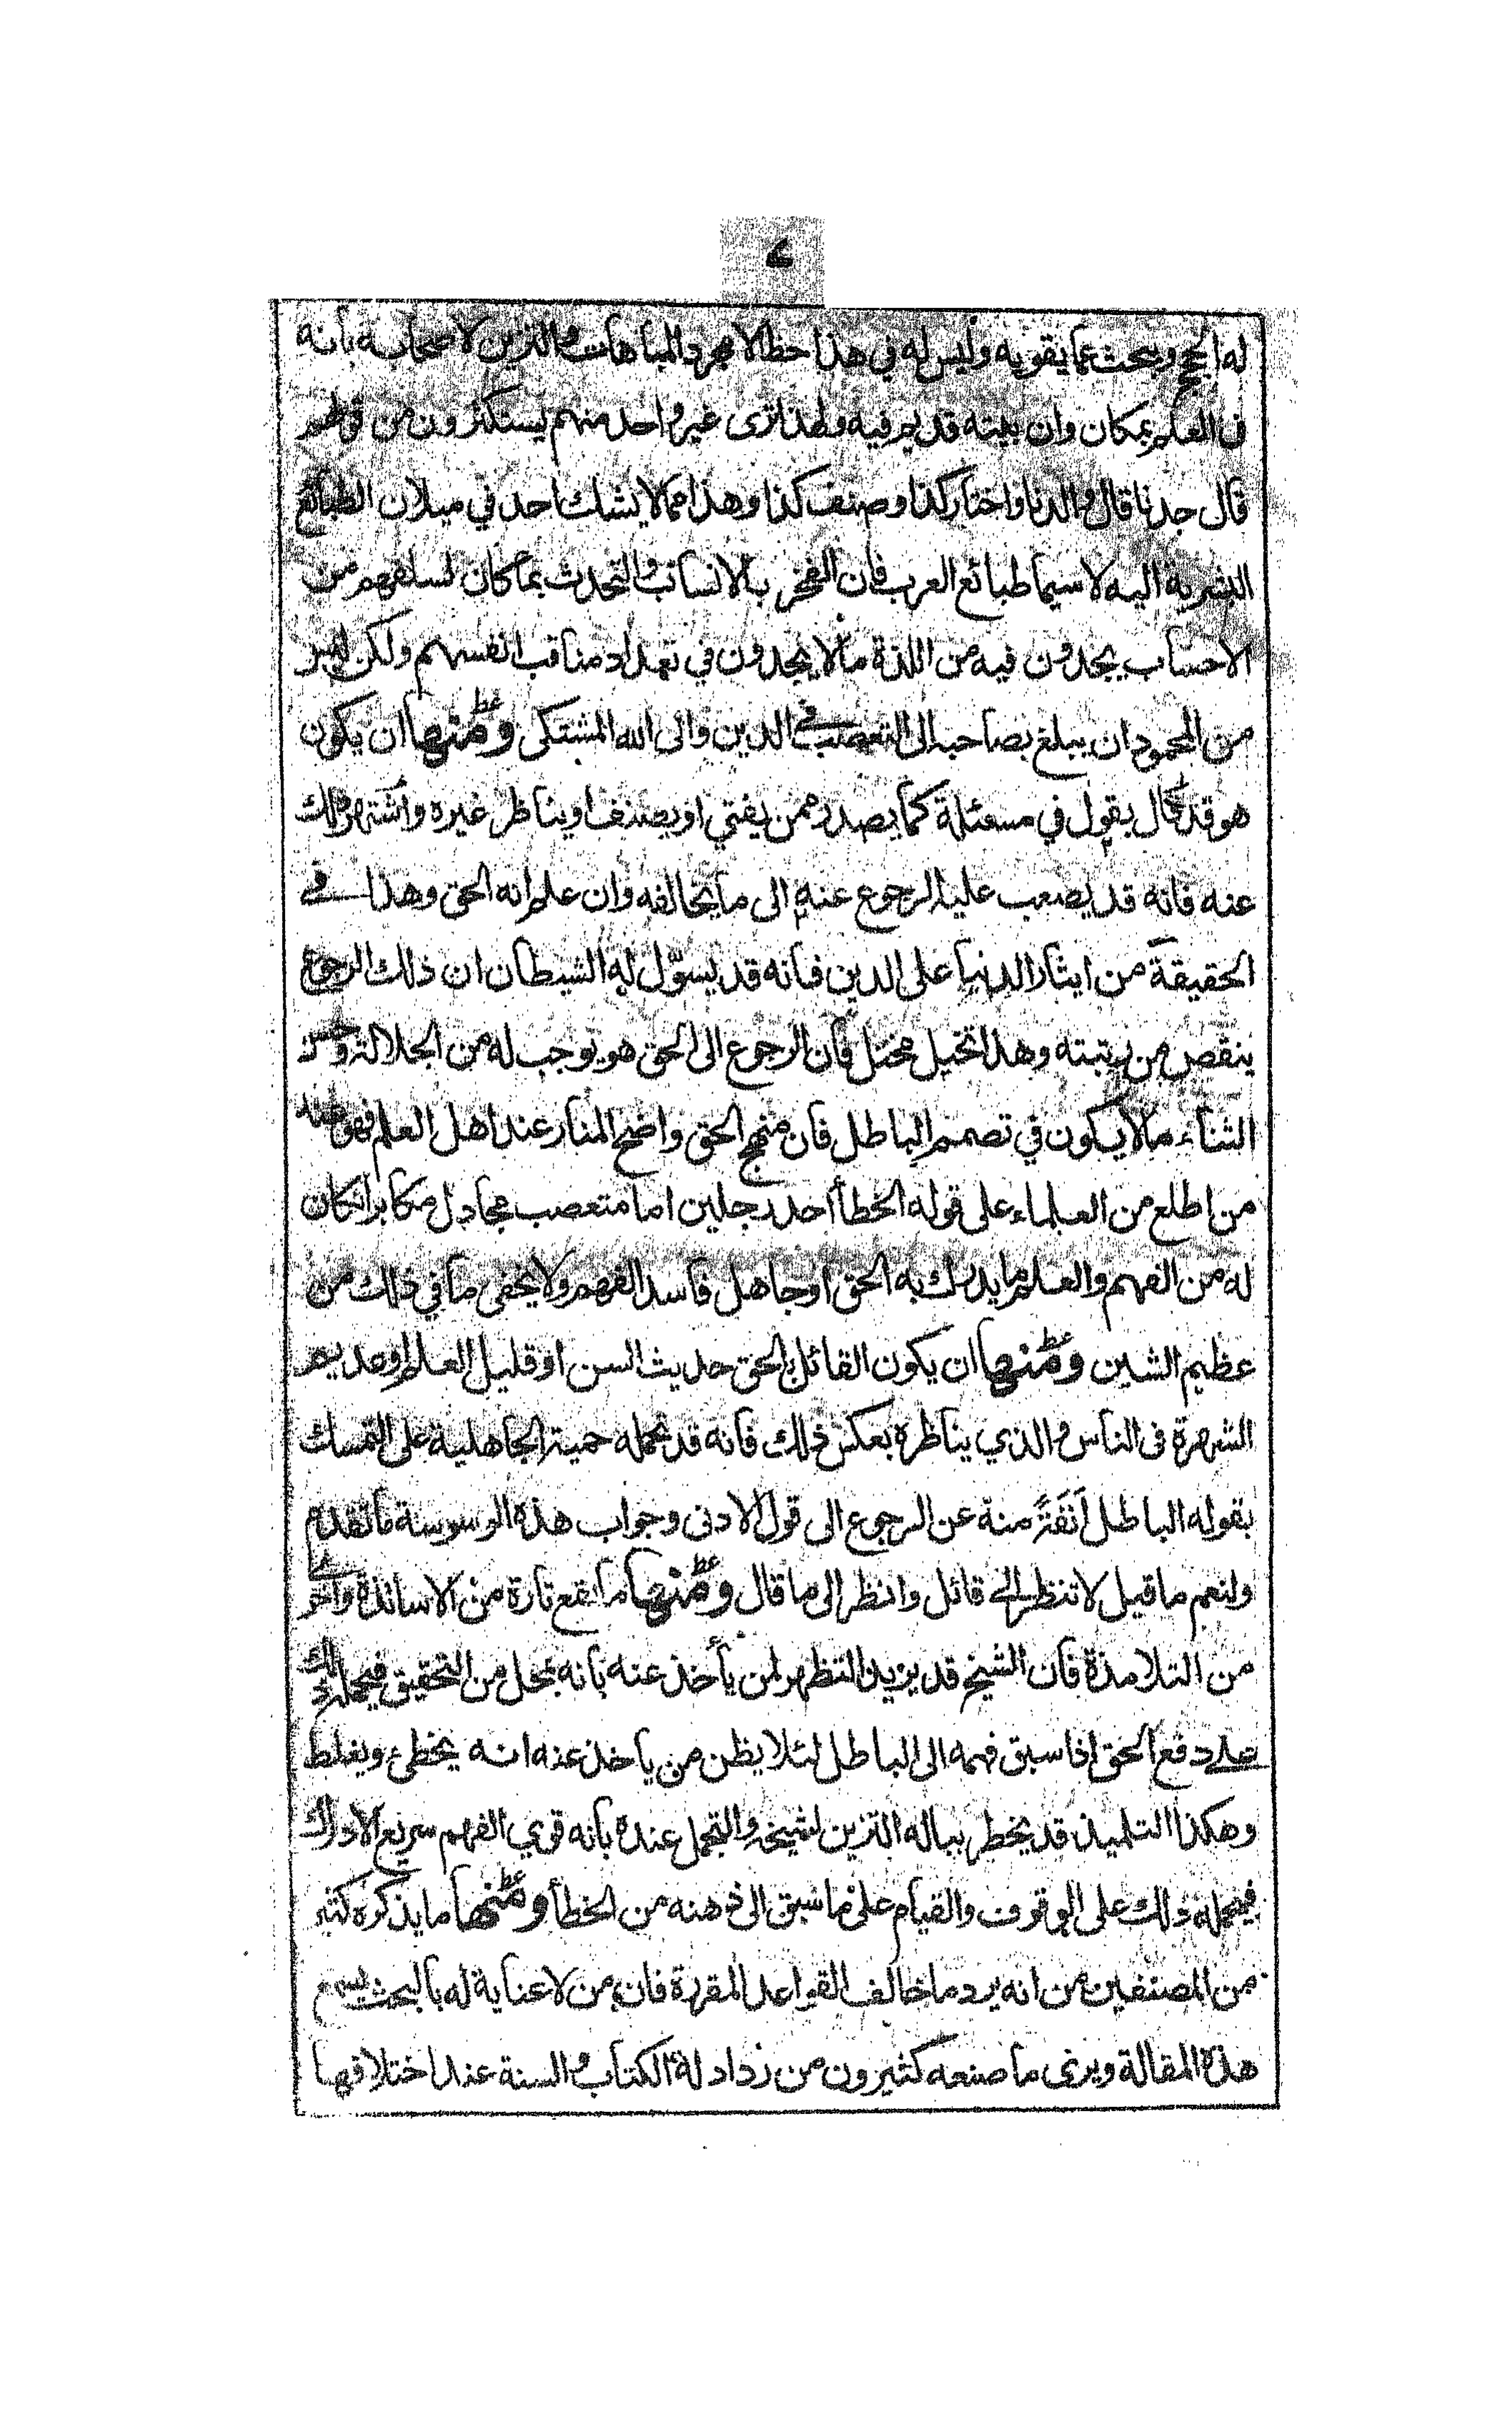 له الحجج ويبحث عما يقويه وليس له في هذا حظ الا مجرد المباهات والتزين لاصحابه بانه
في العلم بمكان وان بيته قديم فيه ولهذا ترى غير واحد منهم يستكثرون من قولهم
قال جدنا قال والدنا واختار كذا وصنف كذا وهذا مما لا يشك احد في ميلان الطبائع
البشرية اليه لا سيما طبائع العرب فان الفخر بالانساب والتحدث بما كان لسلفهم من
الاحساب يجدون فيه من اللذة ما لا يجدون في تعداد مناقب انفسهم ولكن ليس
من المحمود ان يبلغ بصاحبه الى التعصب في الدين والى الله المشتكى ومنها ان يكون
هو قد قال بقول في مسئلة كما يصدر ممن يفتي او يصنف او يناظر غيره واشتهر ذلك
عنه فانه قد يصعب عليه الرجوع عنه الى ما يخالفه وان علم انه الحق وهذا في
الحقيقة من ايثار الدنيا على الدين فانه قد يسوّل له الشيطان ان ذلك الرجوع
ينقص من رتبته وهذا تخيل مختل فان الرجوع الى الحق هو يوجب له من الجلالة وحسن
الثناء ما لا يكون في تصميم الباطل فان منهج الحق واضح المنار عند اهل العلم
من اطلع من العلماء على قوله الخطأ احد رجلين اما متعصب مجادل مكابر انكان
له من الفهم والعلم ما يدرك به الحق او جاهل فاسد الفهم ولا يخفى ما في ذلك من
عظيم الشين ومنها ان يكون القائل بالحق حديث السن او قليل العلم او عديم
الشهرة في الناس والذي يناظره بعكس ذلك فانه قد تحمله حمية الجاهلية على التمسك
بقوله الباطل اَنَفَةً منه عن الرجوع الى قول الادنى وجواب هذه الوسوسة ما تقدم
ولنعم ما قيل لا تنظر الى قائل وانظر الى ما قال ومنها ما يقع تارة من الاساتذة واخرى
من التلامذة فان الشيخ قد يريد التظهر لمن يأخذ عنه بانه بمحل من التحقيق فيحمله ذلك
على دفع الحق اذا سبق فهمه الى الباطل لئلا يظن من ياخذ عنه انه يخطئ ويغلط
وهكذا التلميذ قد يخطر بباله التزين لشيخه والتجمل عنده بانه قوي الفهم سريع الادراك
فيحمله ذلك على الوقوف والقيام على ما سبق الى ذهنه من الخطأ ومنها ما يذكره كثير
من المصنفين من انه يرد ما خالف القواعد المقررة فان من لا عناية له بالبحث يسمع
هذه المقالة ويرى ما صنعه كثيرون من رد ادلة الكتاب والسنة عند اختلافها